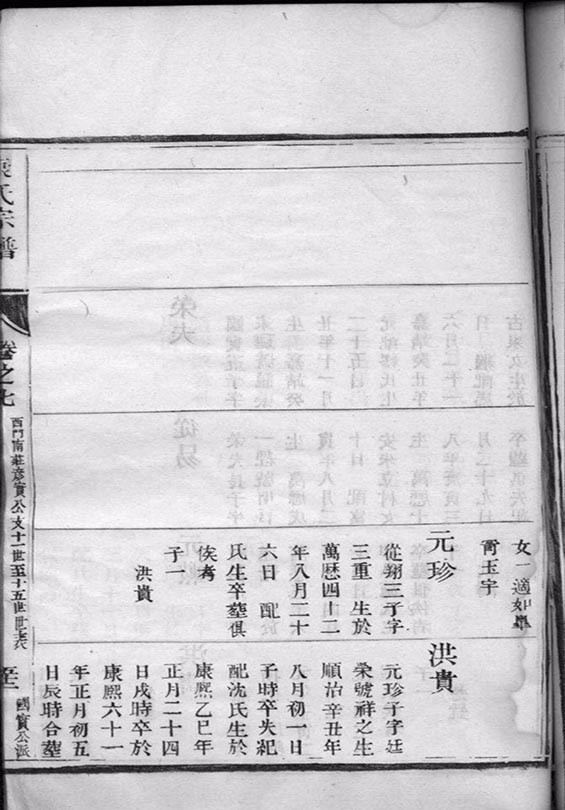 女一適如皋
甯玉字
元珍
從翔三子字
三重 生於
萬歷四十二
年八月二十
六日 配
氏生卒塟俱
俟考
子一
洪貴
洪貴
元珍子字廷
榮號祥之生
順治辛丑年
八月初一日
子時卒失紀
配沈氏生於
康熙乙巳年
正月二十四
日戌時卒於
康熙六十一
年正月初五
日辰時合塟
氏宗譜
卷之七
西門南莊彥實公支十一世至十五世世表
國實公派